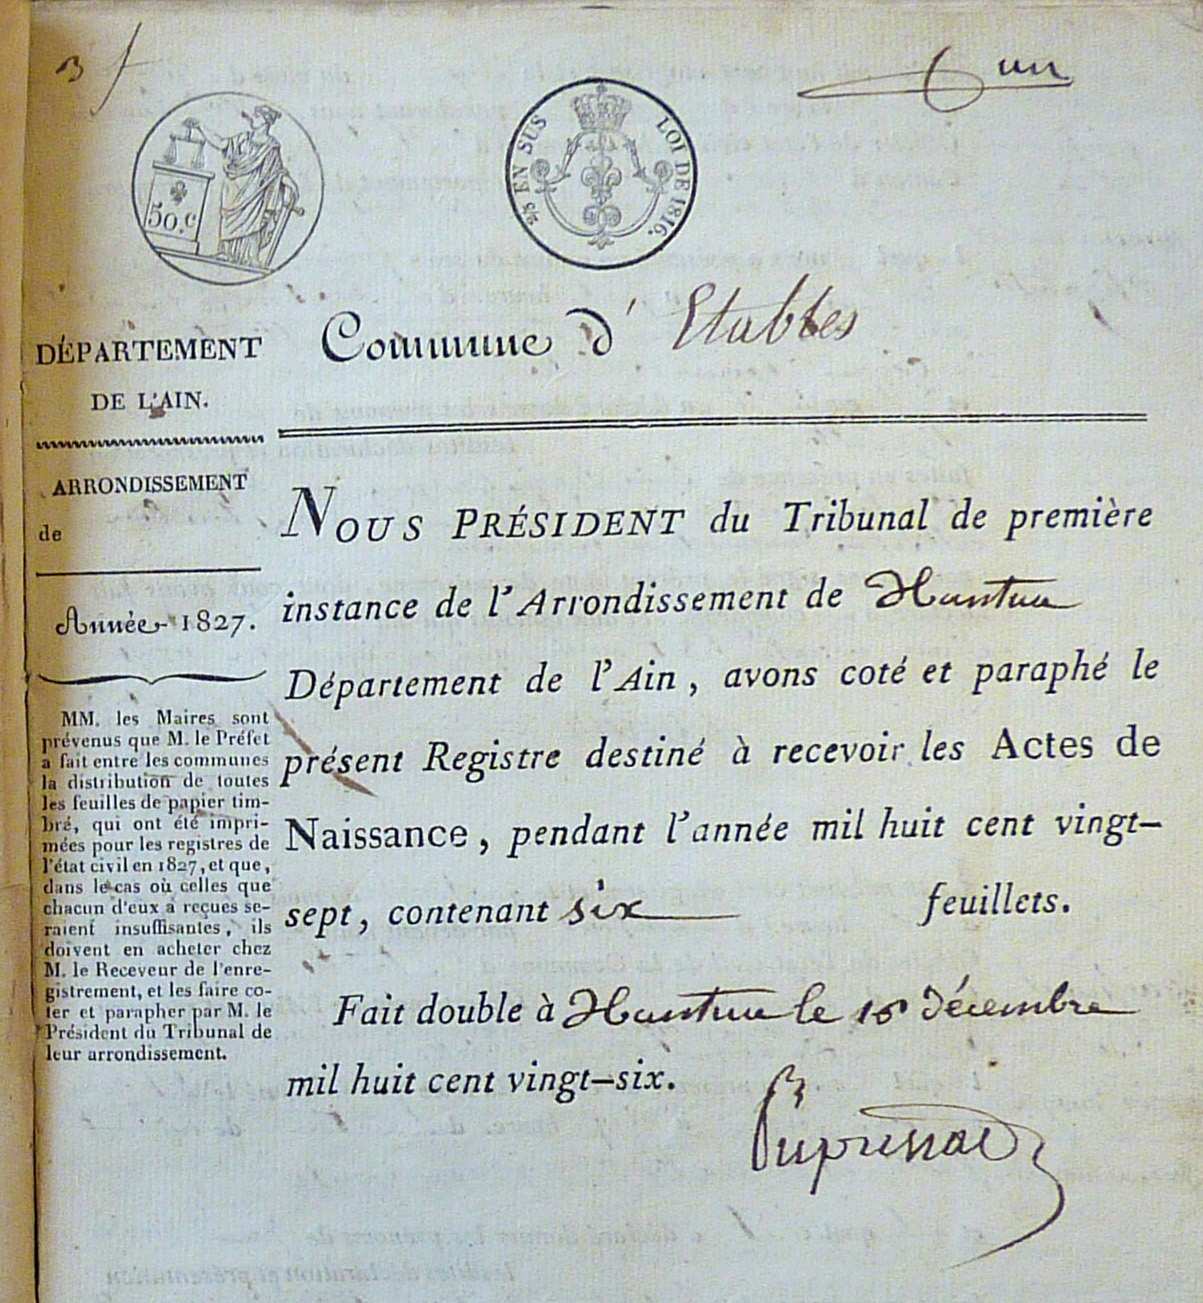 un
50.C
2/5 EN SUS LOI DE 1816.
DÉPARTEMENT
DE L'AIN.
ARRONDISSEMENT
de
Année 1827.
MM. les Maires sont
prévenus que M. le Préfet
a fait entre les communes
la distribution de toutes
les feuilles de papier tim-
bré, qui ont été impri-
mées pour les registres de
l'état civil en 1827, et que,
dans le cas où celles que
chacun d'eux a reçues se-
raient insuffisantes, ils
doivent en acheter chez
M. le Receveur de l'enre-
gistrement, et les faire co-
ter et parapher par M. le
Président du Tribunal de
leur arrondissement.
Commune d'Etables
NOUS PRÉSIDENT du Tribunal de première
instance de l'Arrondissement de Nantua
Département de l'Ain, avons coté et paraphé le
présent Registre destiné à recevoir les Actes de
Naissance, pendant l'année mil huit cent vingt-
sept, contenant six feuillets.
Fait double à Nantua le décembre
mil huit cent vingt-six.